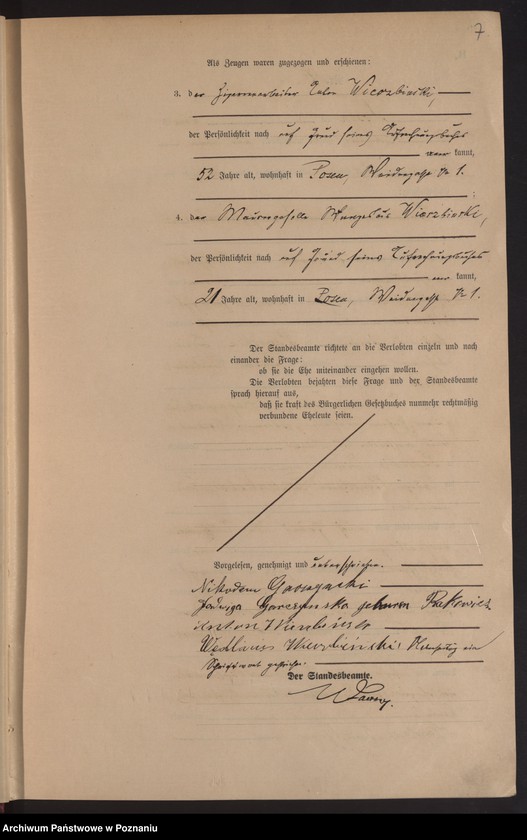 7
Als Zeugen waren zugezogen und erschienen:
3. der Zigarrenarbeiter Anton Wierzbinski,
der Persönlichkeit nach auf Grund seines
kannt,
52 Jahre alt, wohnhaft in Posen, Weidengasse No 1.
4. der Maurergeselle Wierzbinski,
der Persönlichkeit nach auf Grund seines
kannt,
21 Jahre alt, wohnhaft in Posen, Weidengasse No 1.
Der Standesbeamte richtete an die Verlobten einzeln und nach
einander die Frage:
ob sie die Ehe miteinander eingehen wollen.
Die Verlobten bejahten diese Frage und der Standesbeamte
sprach hierauf aus,
daß sie kraft des Bürgerlichen Gesetzbuches nunmehr rechtmäßig
verbundene Eheleute seien.
Vorgelesen, genehmigt und unterschrieben.
Nikodem
Jadwiga geboren
Anton
Wierzbinski
gestrichen.
Der Standesbeamte.
Archiwum Państwowe w Poznaniu